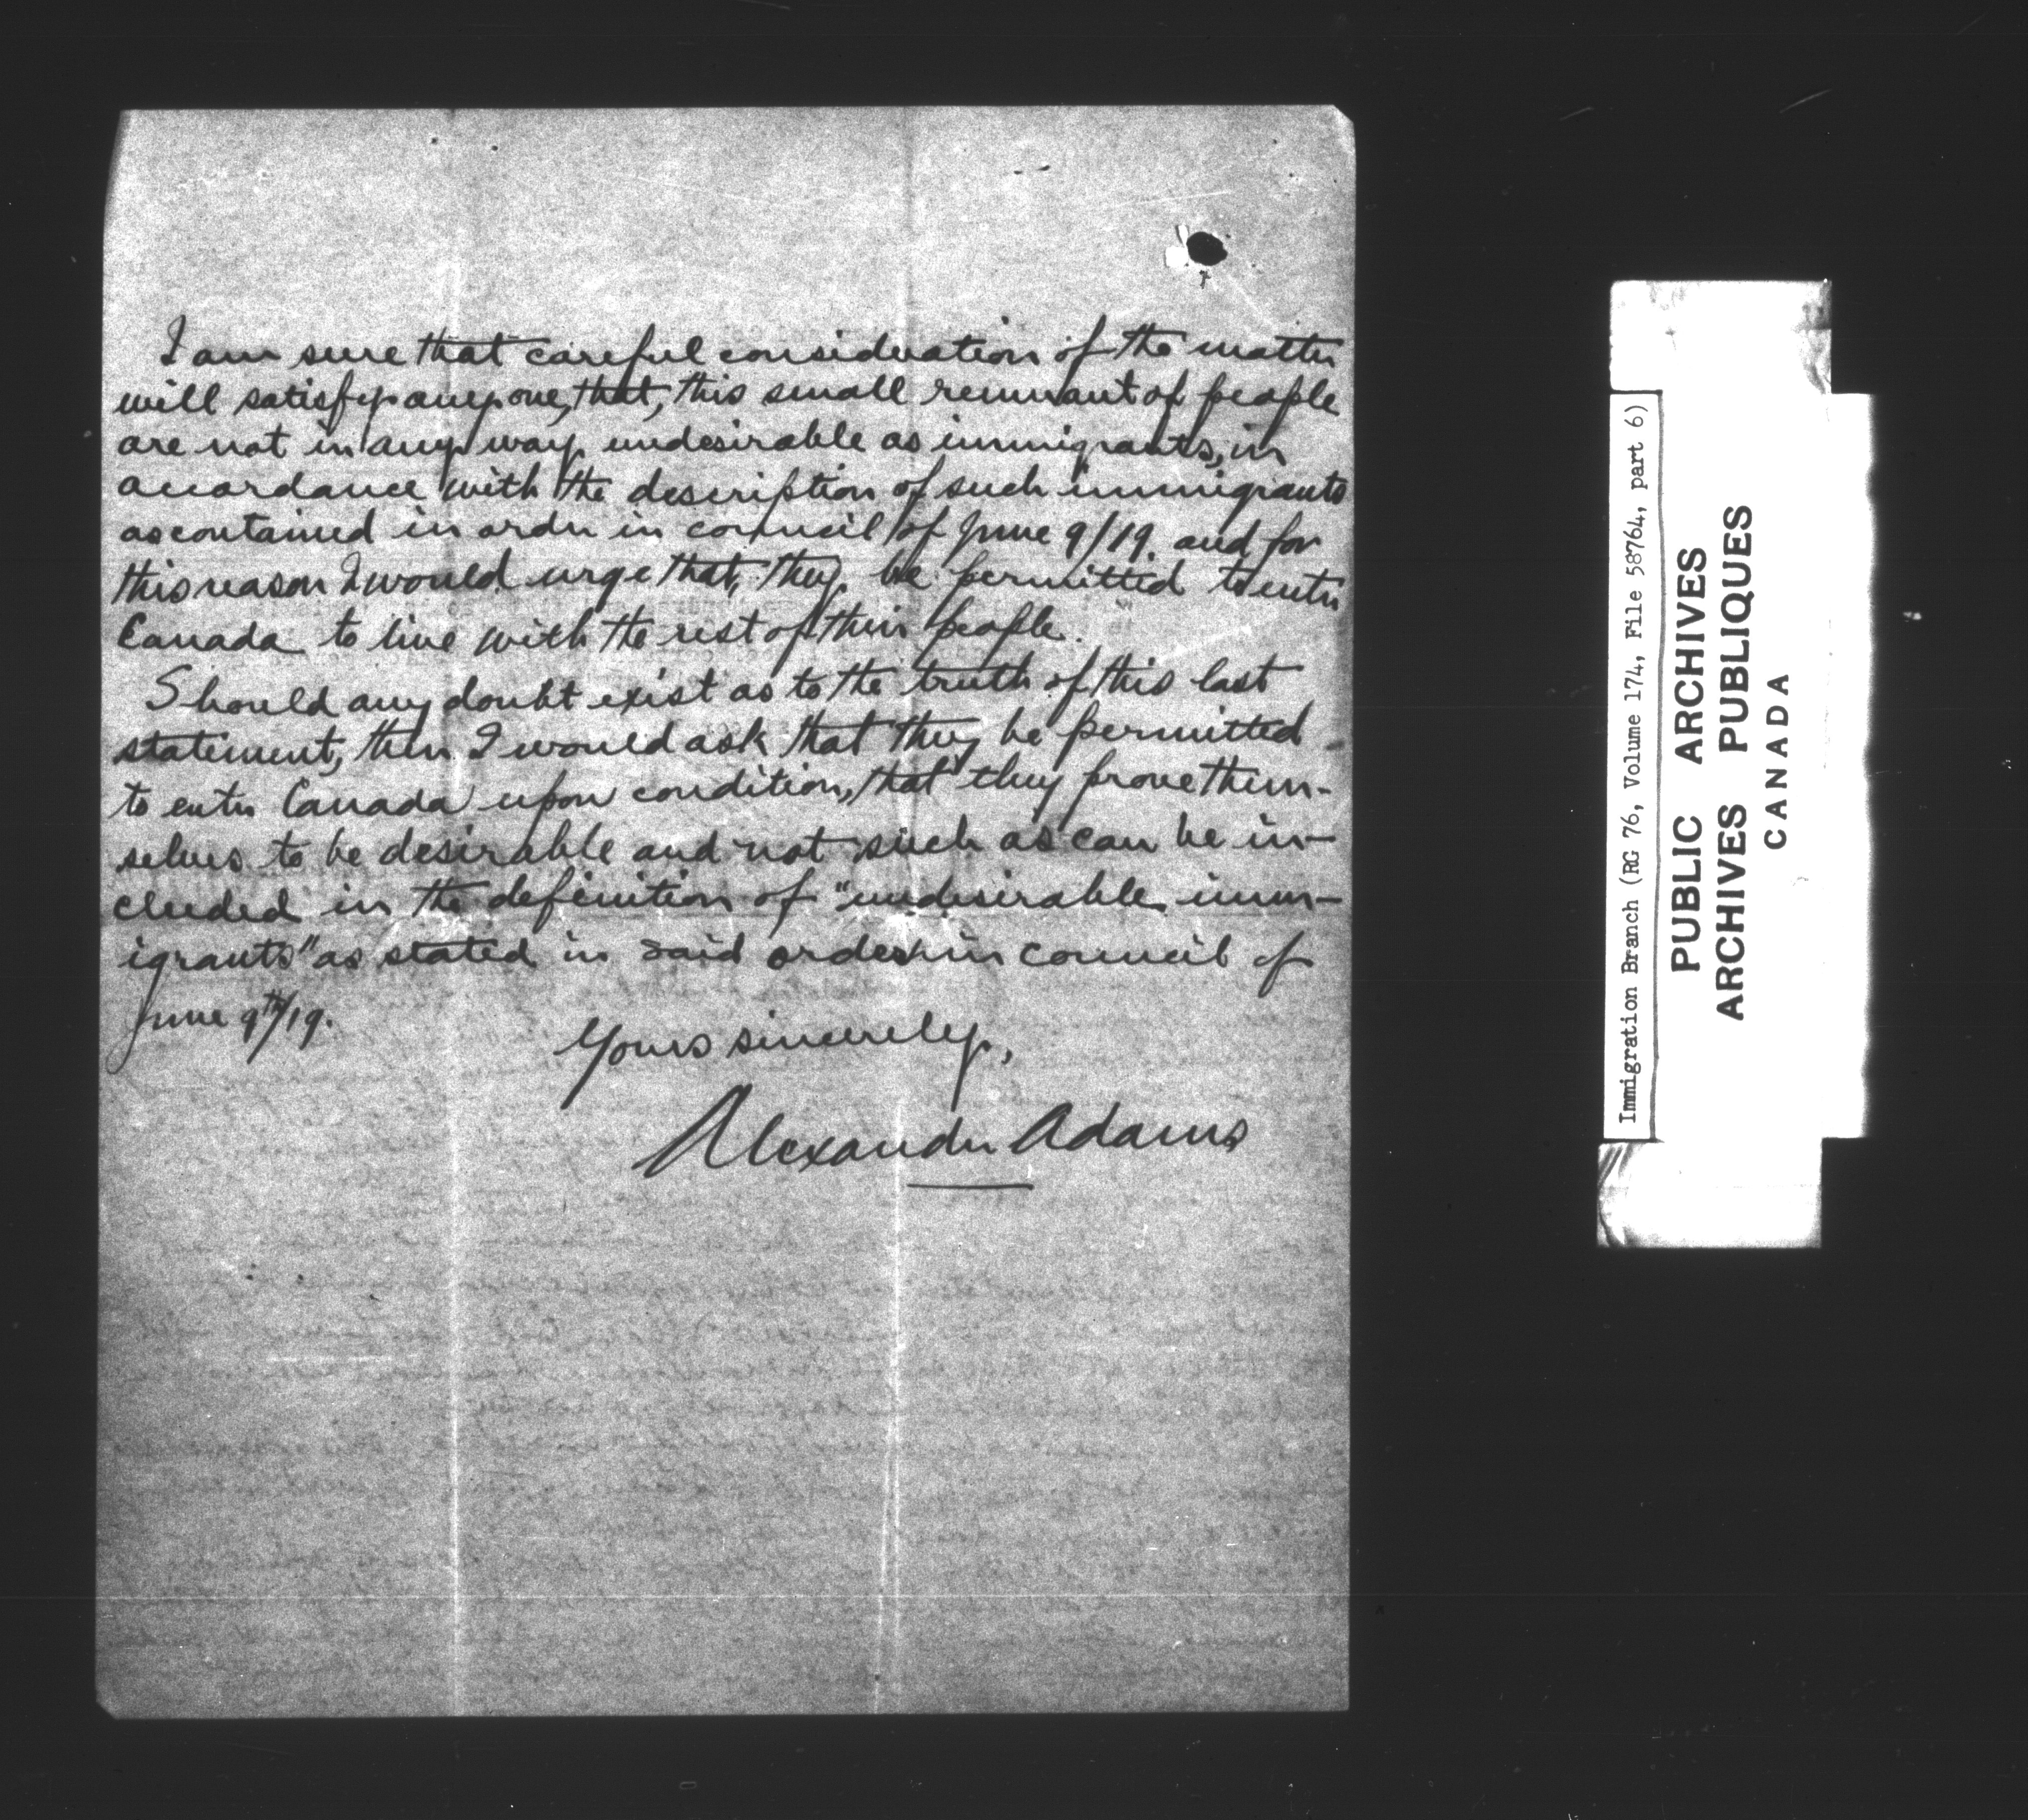 I am sure that careful consideration of the matter
will satisfy anyone, that, this small remnant of people
are not in any way undesirable as immigrants, in
accordance with the description of such immigrants
as contained in order in council of June 9/19. and for
this reason I would urge that, they be permitted to enter
Canada to live with the rest of their people.
Should any doubt exist as to the truth of this last
statement, then I would ask that they be permitted
to enter Canada upon condition, that they prove them-
selves to be desirable and not such as can be in-
cluded in the definition of "undesirable imm-
igrants" as stated in said order in council of
June 9th/19.
Yours sincerely,
Alexander Adams
Immigration Branch (RG 76, Volume 174, File 58764, part 6)
PUBLIC ARCHIVES
ARCHIVES PUBLIQUES
CANADA